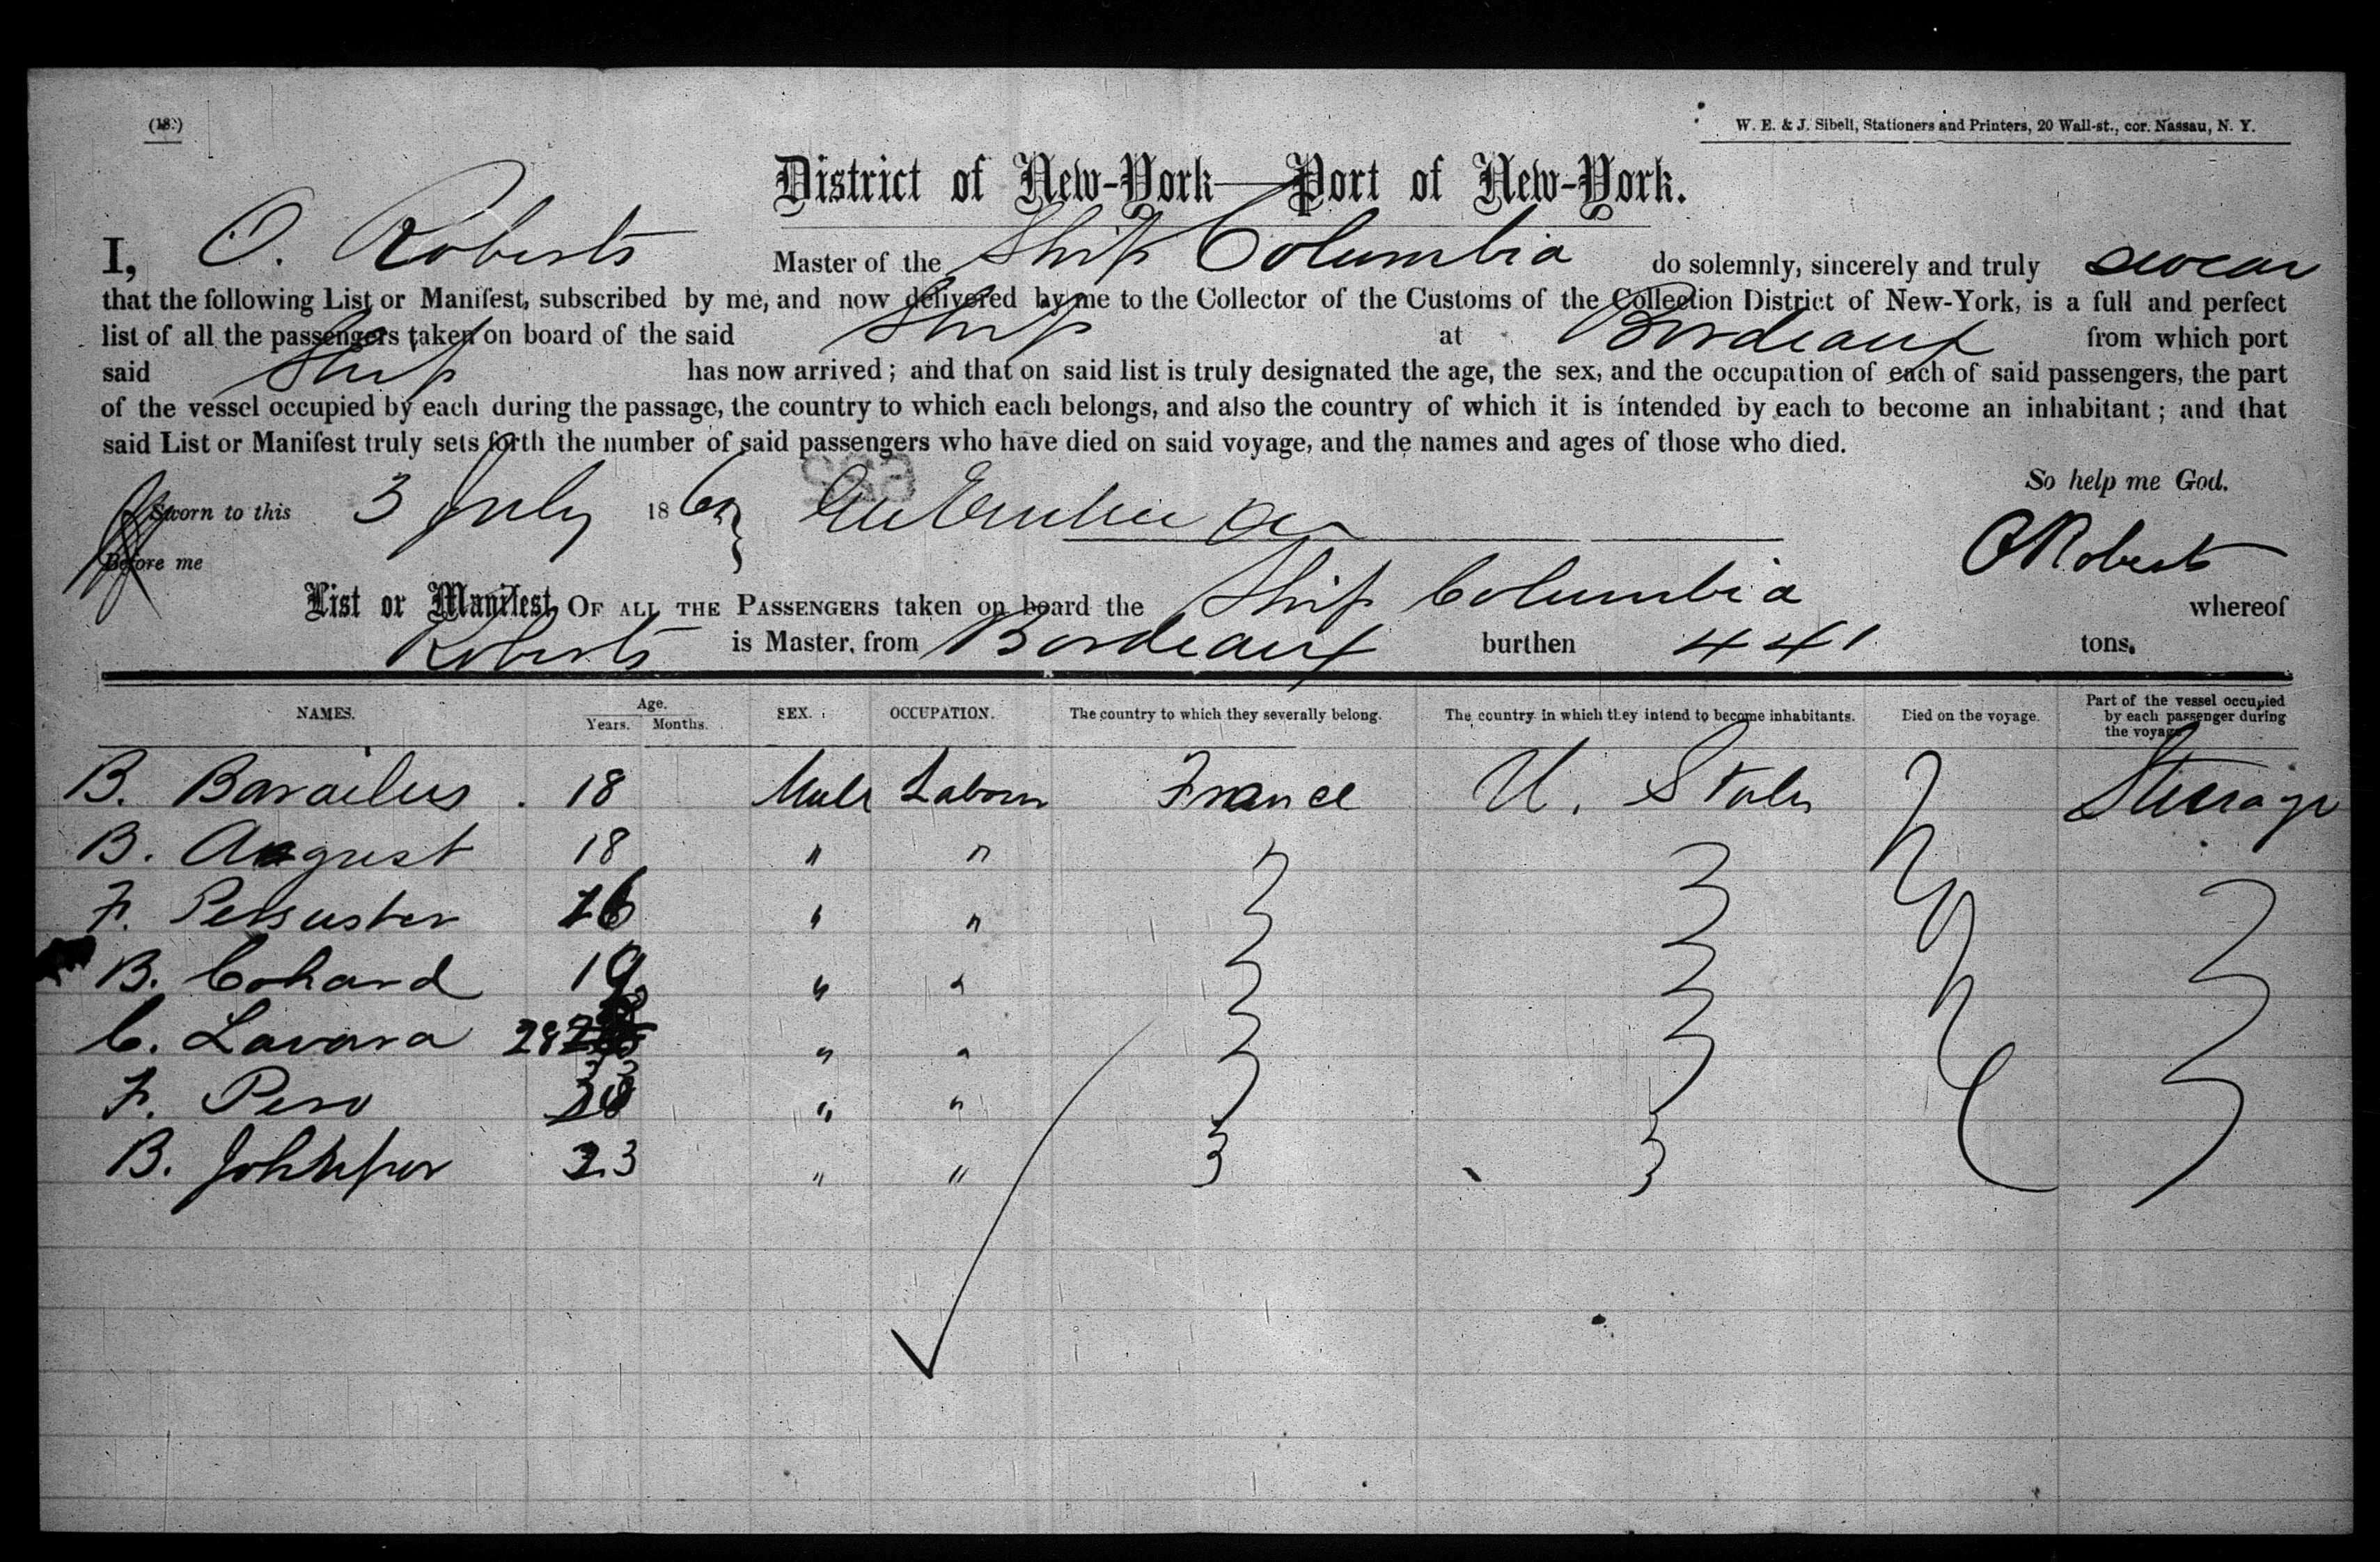 (18.)
W. E. & J. Sibell, Stationers and Printers, 20 Wall-st., cor. Nassau, N. Y.
District of New-York—Port of New-York.
I, O. Roberts Master of the Ship Columbia do solemnly, sincerely and truly swear
that the following List or Manifest, subscribed by me, and now delivered by me to the Collector of the Customs of the Collection District of New-York, is a full and perfect
list of all the passengers taken on board of the said Ship at Bordeaux from which port
said Ship has now arrived; and that on said list is truly designated the age, the sex, and the occupation of each of said passengers, the part
of the vessel occupied by each during the passage, the country to which each belongs, and also the country of which it is intended by each to become an inhabitant; and that
said List or Manifest truly sets forth the number of said passengers who have died on said voyage, and the names and ages of those who died.
So help me God.
Sworn to this 3 July 186
O Roberts
Before me
List or Manifest OF ALL THE PASSENGERS taken on board the Ship Columbia whereof
Roberts is Master, from Bordeaux burthen 441 tons.
NAMES. Age. Years. Months. SEX. OCCUPATION. The country to which they severally belong. The country in which they intend to become inhabitants. Died on the voyage. Part of the vessel occupied by each passenger during the voyage
B. 18 Male Labour France U. States Steerage
B. August 18 " "
F. 26 " "
B. Cohard 19 " "
C. Lavara 28 " "
F. Pero " "
B. 23 " "